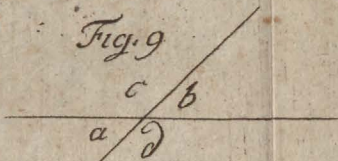 Fig. 9
c b
a d